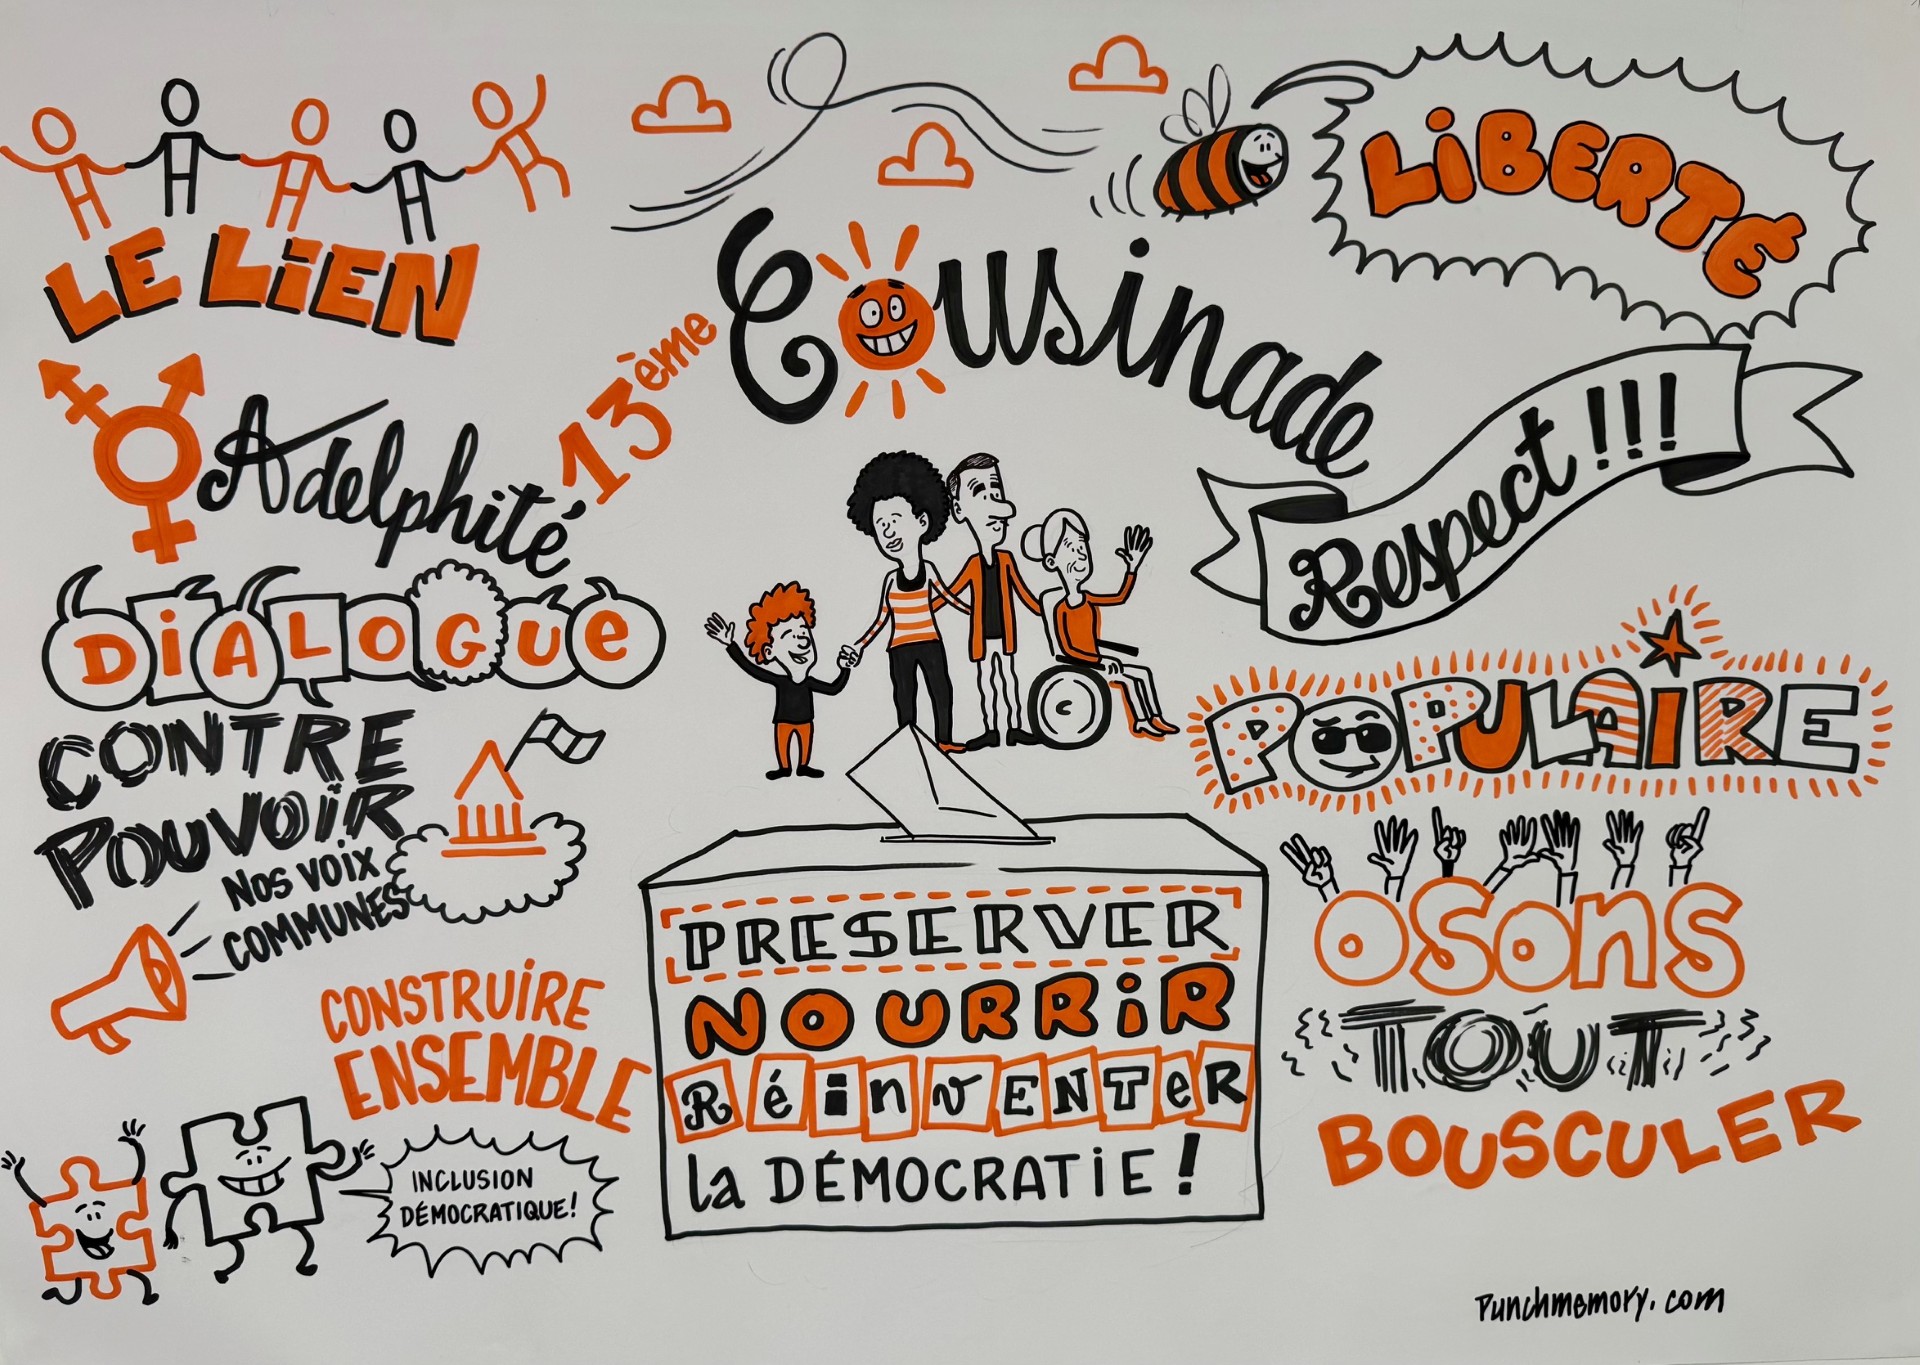 LE LiEN
Adelphité
DiALOGUe
CONTRE
POUVOIR
NOS VOIX
COMMUNES
CONSTRUiRE
ENSEMBLE
INCLUSION
DÉMOCRATIQUE!
13ème Cousinade
PRESERVER
NOURRiR
RéinvENTeR
la DÉMOCRATiE!
LiBERTÉ
Respect!!!
POPULAIRE
osons
TOUT
BOUSCULER
Punchmemory.com